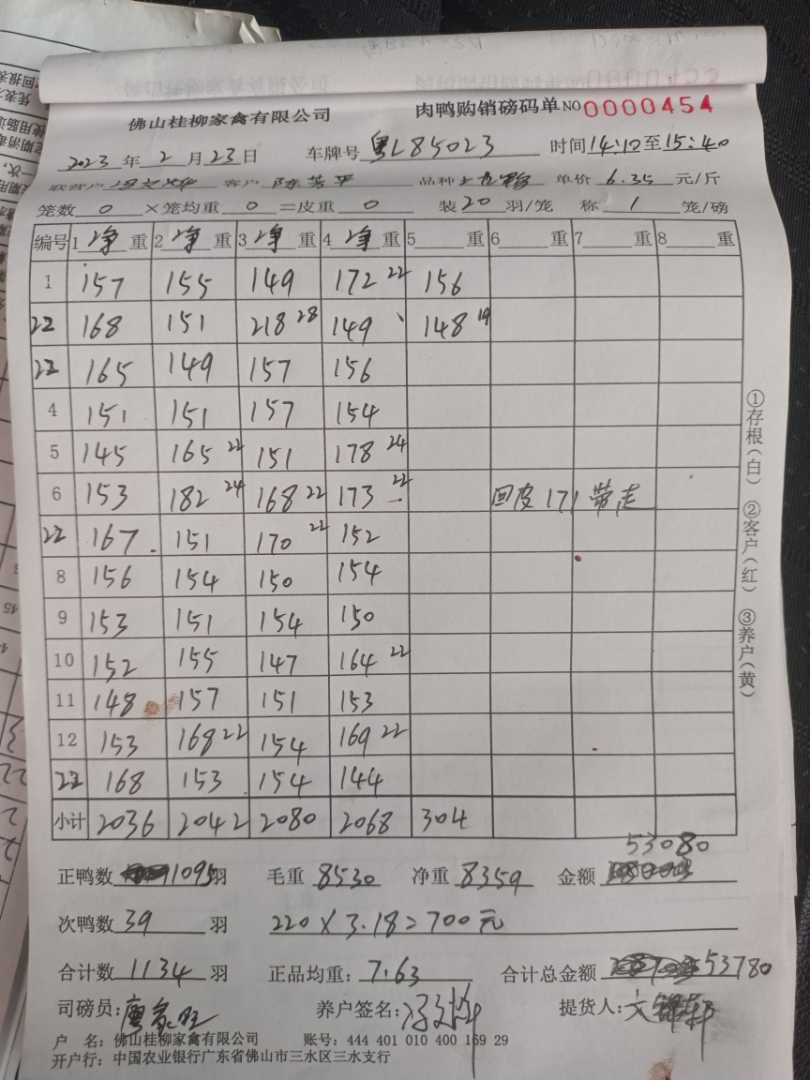 佛山桂柳家禽有限公司 肉鸭购销磅码单 NO 0000454
2023 年 2 月 23 日 车牌号 粤L85023 时间 14:10 至 15:40
客户 陈芳平 品种 单价 6.35 元/斤
笼数 0 ×笼均重 0 =皮重 0 装 20 羽/笼 称 1 笼/磅
编号 1 净 重 2 净 重 3 净 重 4 净 重 5 重 6 重 7 重 8 重
1 157 155 149 172 22 156
22 168 151 218 28 149 148 19
22 165 149 157 156
4 151 151 157 154
5 145 165 22 151 178 24
6 153 182 24 168 22 173 22 回皮 171 带走
22 167 151 170 22 152
8 156 154 150 154
9 153 151 154 150
10 152 155 147 164 22
11 148 157 151 153
12 153 168 22 154 169 22
22 168 153 154 144
小计 2036 2042 2080 2068 304
①存根(白) ②客户(红) ③养户(黄)
正鸭数 1095 羽 毛重 8530 净重 8359 金额 53080
次鸭数 39 羽 220 × 3.18 = 700 元
合计数 1134 羽 正品均重: 7.63 合计总金额 53780
司磅员: 养户签名: 提货人:
户 名: 佛山桂柳家禽有限公司 账号: 444 401 010 400 169 29
开户行: 中国农业银行广东省佛山市三水区三水支行